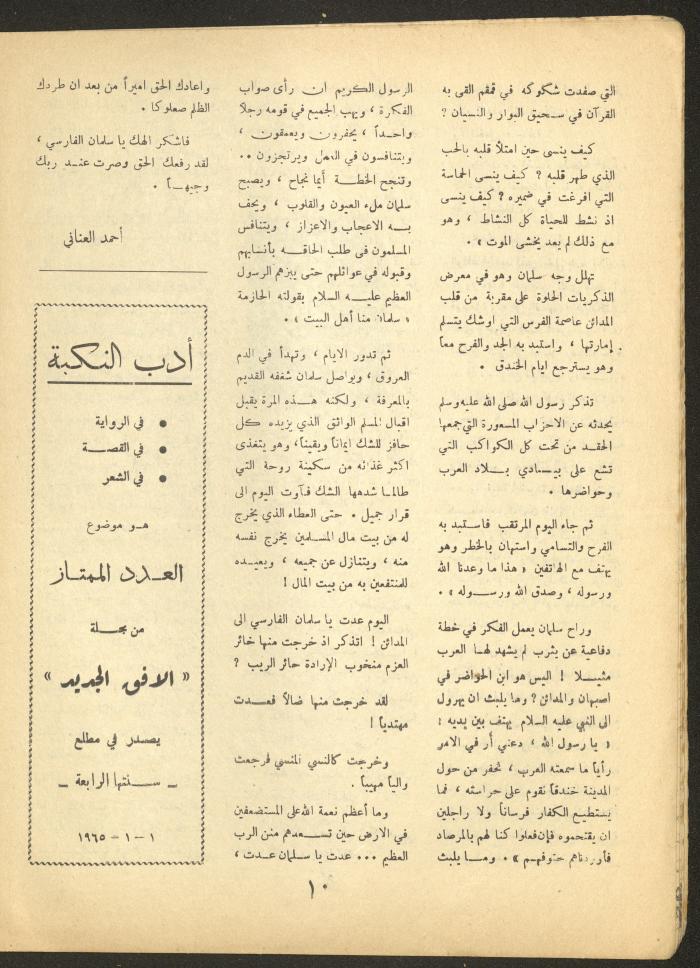 التي صفدت شكوكه في قمقم القى به
القرآن في سحيق البوار والنسيان ؟
كيف ينسى حين امتلأ قلبه بالحب
الذي طهر قلبه ؟ كيف ينسى الحماسة
التي افرغت في ضميره ؟ كيف ينسى
اذ نشط للحياة كل النشاط ، وهو
مع ذلك لم يعد يخشى الموت » .
تهلل وجه سلمان وهو في معرض
الذكريات الحلوة على مقربة من قلب
المدائن عاصمة الفرس التي اوشك يتسلم
إمارتها ، واستبد به الجد والفرح معاً
وهو يسترجع ايام الخندق .
تذكر رسول الله صلى الله عليه وسلم
يحدثه عن الاحزاب المسعورة التي جمعها
الحقد من تحت كل الكواكب التي
تشع على بيـوادي بـلاد العرب
وحواضرها .
ثم جاء اليوم المرتقب فاستبد به
الفرح والتسامي واستهان بالخطر وهو
يهتف مع الهاتفين « هذا ما وعدنا الله
ورسوله ، وصدق الله ورسـوله » .
وراح سلمان يعمل الفكر في خطة
دفاعية عن يثرب لم يشهد لهـا العرب
مثيـلا ! اليس هو ابن الحواضر في
اصبهان والمدائن ؟ وما يلبث ان يهرول
الى النبي عليه السلام يهتف بين يديه :
« يا رسول الله ، دعني أر في الامر
رأياً ما سمعته العرب ، نحفر من حول
المدينة خندقاً نقوم على حراسته ، فما
يستطيـع الكفار فرساناً ولا راجلين
ان يقتحموه فإن فعلوا كنا لهم بالمرصاد
فأوردناهم حتوفهـم » . ومـا يلبث
الرسول الكريم ان رأى صواب
الفكرة ، ويهب الجميع في قومه رجلا
واحـداً ، يحفرون ويعمقون ،
ويتنافسون في العمل ويرتجزون ..
وتنجح الخطـة أيما نجاح ، ويصبح
سلمان ملء العيون والقلوب ، ويحف
بـه الاعجاب والاعزاز ، ويتنافس
المسلمون في طلب الحاقـه بأنسابهم
وقبوله في عوائلهم حتى يبزهم الرسول
العظيم عليـه السلام بقولته الحازمة
« سلمان منا أهل البيت » .
ثم تدور الايام ، وتهدأ في الدم
العروق ، ويواصل سلمان شغفه القديم
بالمعرفة ، ولكنه هـذه المرة يقبل
اقبال المسلم الواثق الذي يزيده كل
حافز للشك ايماناً ويقيناً، وهو يتغذى
اكثر غذائه من سكينة روحة التي
طالمـا شدهها الشك فآوت اليوم الى
قرار جميل . حتى العطاء الذي يخرج
له من بيت مال المسلمين يخرج نفسه
منه ، ويتنازل عن جميعه ، ويعيـده
للمنتفعين به من بيت المال !
اليوم عدت يا سلمان الفارسي الى
المدائن ! اتذكر اذ خرجت منها خائر
العزم منخوب الإرادة حائر الريب ؟
لقد خرجت منهـا ضالاً فعـدت
مهتدياً !
وخرجت كالنسي المنسي فرجعت
والياً مهيباً .
وما أعظم نعمة الله على المستضعفين
في الارض حين تسـعدهم منن الرب
العظيم ... عدت يا سلمان عدت ،
واعادك الحق اميراً من بعد ان طردك
الظلم صعلوكا .
فاشكر الهك يا سلمان الفارسي ،
لقد رفعك الحق وصرت عنـد ربك
وجيهـاً .
أحمد العناني
أدب النكبة
• في الرواية
• في القصـة
• في الشعر
هـو موضوع
العـدد الممتـاز
من مجـلة
« الافق الجديد »
يصـدر في مطلع
ـ سـنتها الرابعة ـ
١ - ١ - ١٩٦٥
١٠